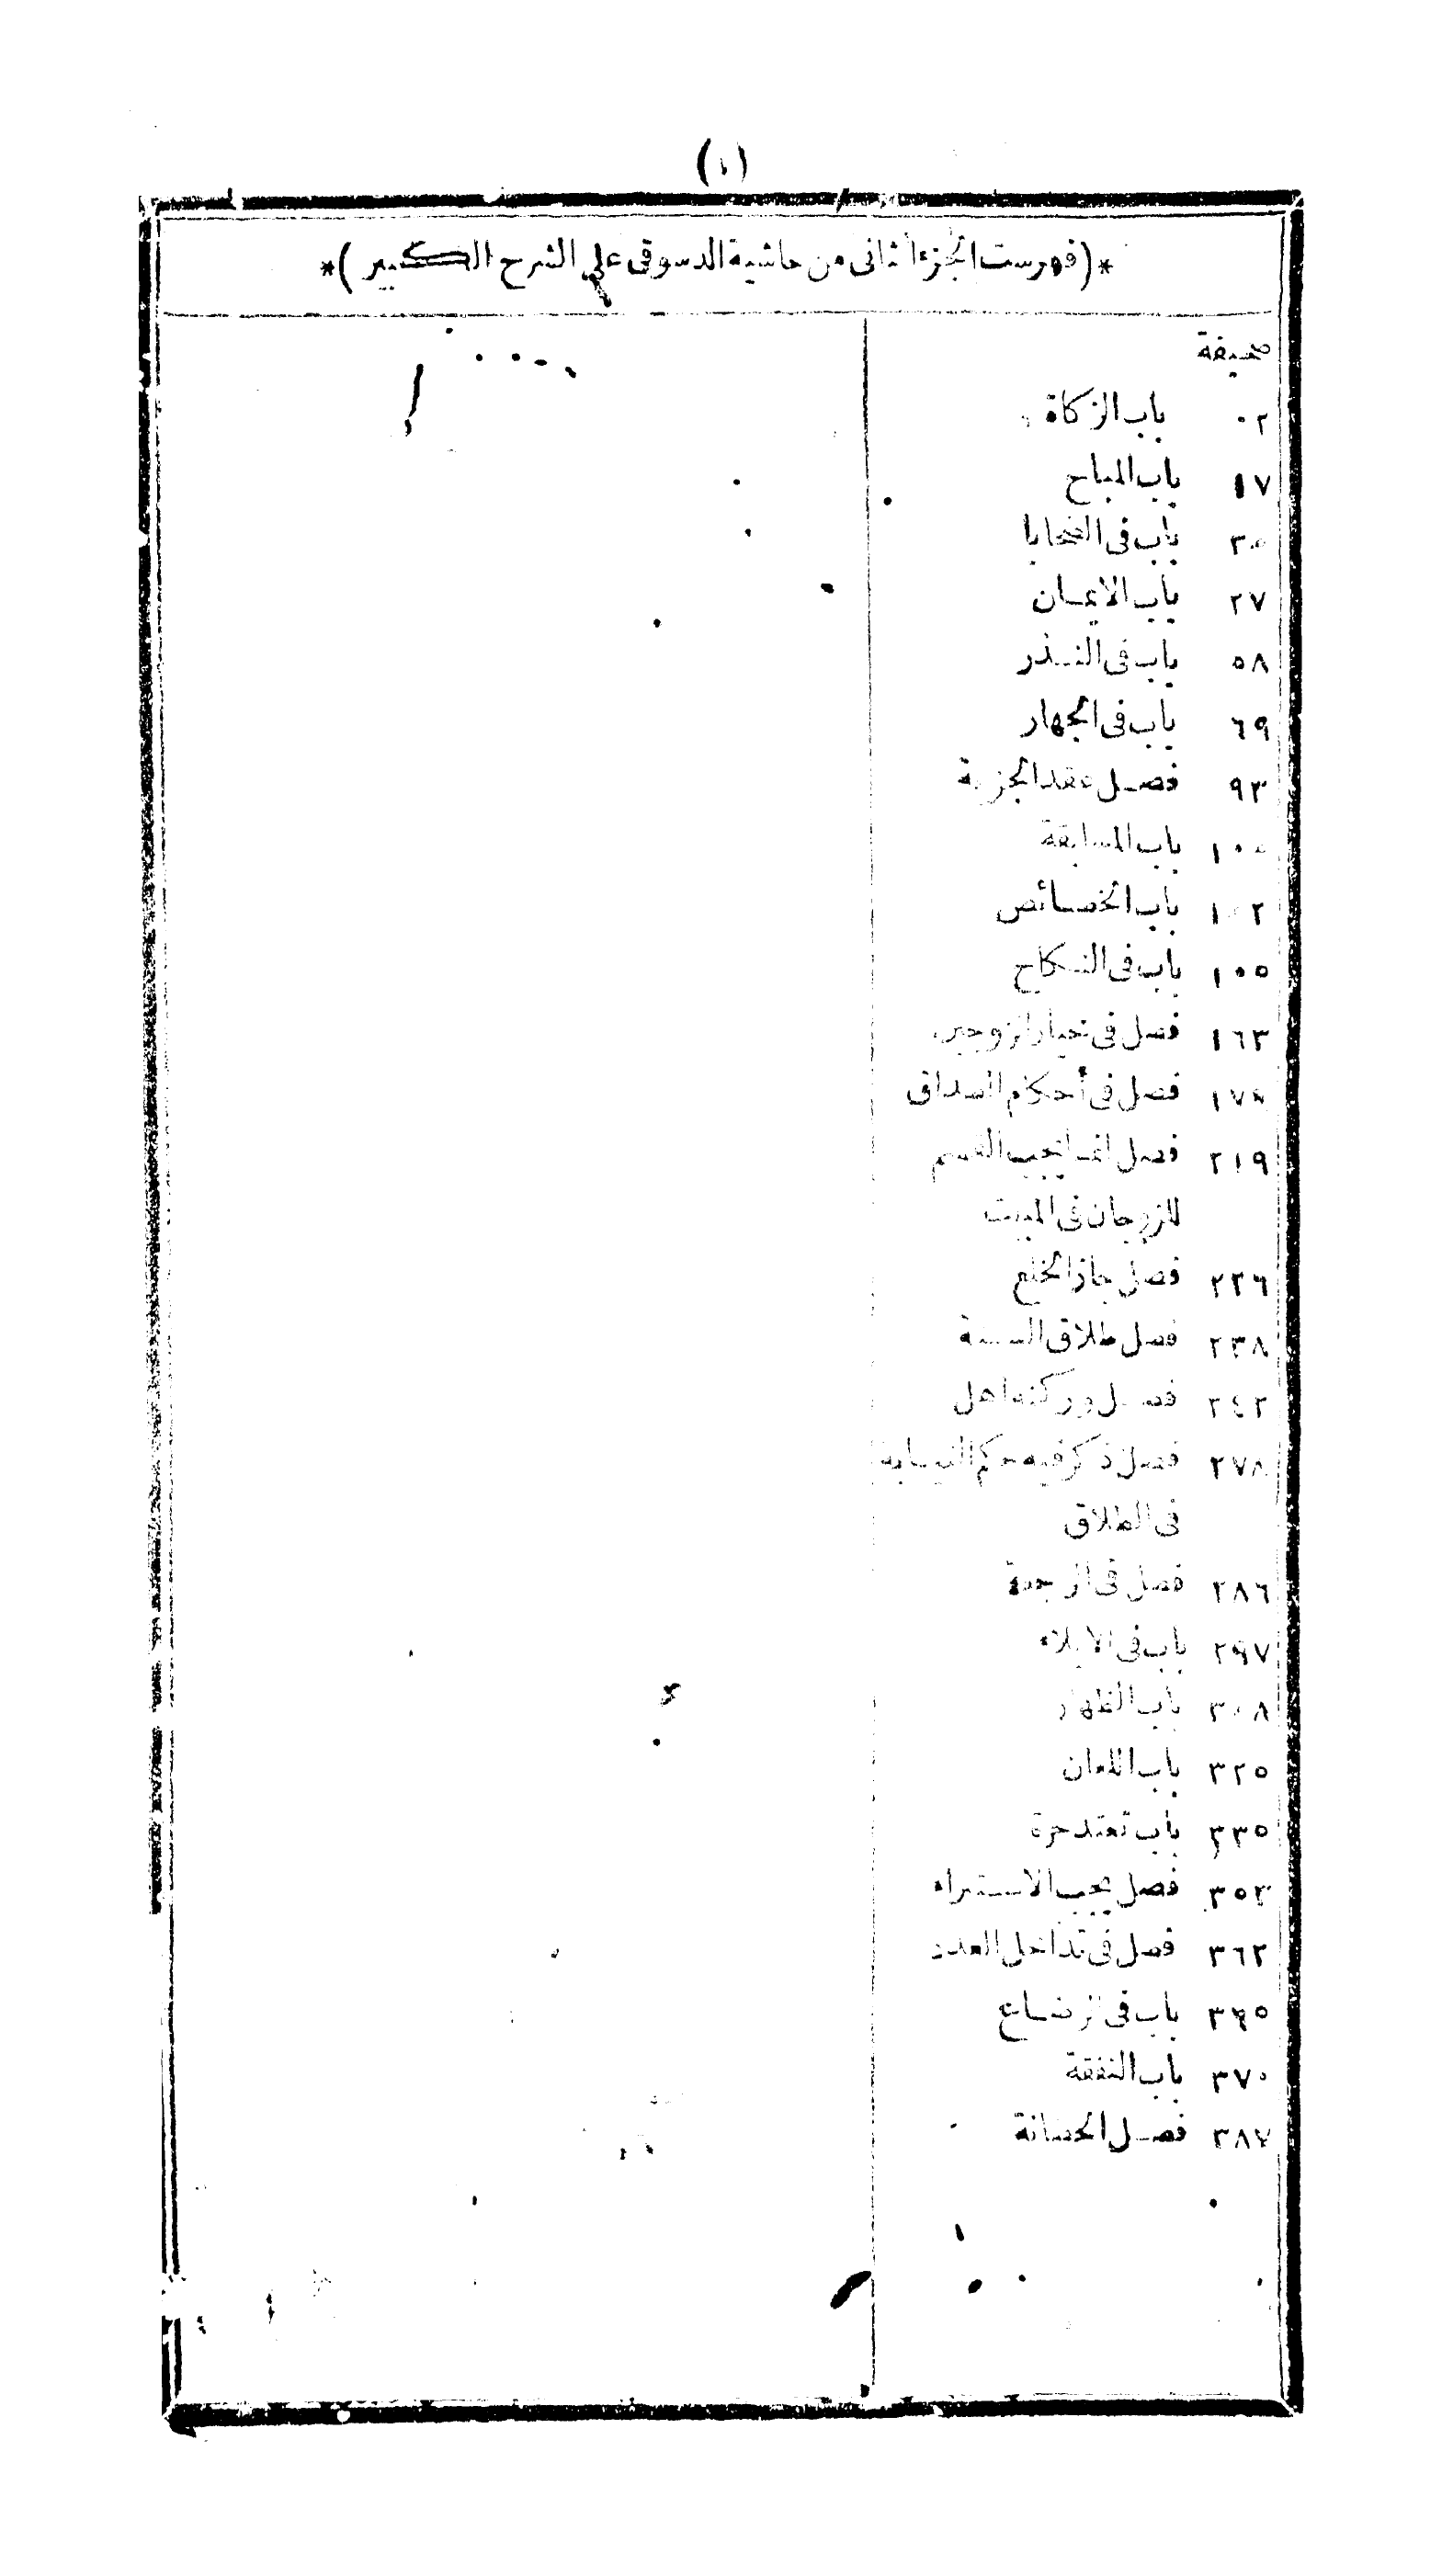 (١)
*(فهرست الجزء الثانى من حاشية الدسوقى على الشرح الكبير)*
صحيفة
٠٢ باب الزكاة
١٧ باب المباح
باب فى الضحايا
٢٧ باب الايمان
٥٨ باب فى النذر
٦٩ باب فى الجهار
٩٣ فصل عقد الجزية
باب المسابقة
١٠٢ باب الخصائص
١٠٥ باب فى النكاح
١٦٣ فصل فى خيار الزوجين
فصل فى أحكام الصداق
٢١٩ فصل انما يجب القسم
للزوجات فى المبيت
٢٢٦ فصل جاز الخلع
٢٣٨ فصل طلاق السنة
٢٤٢ فصل وركنه اهل
٢٧٨ فصل ذكر فيه حكم النيابة
فى الطلاق
٢٨٦ فصل فى الرجعة
٢٩٧ باب فى الايلاء
٣٠٨ باب الظهار
٣٢٥ باب اللعان
٣٣٥ باب تعتد حرة
٣٥٣ فصل يجب الاستبراء
٣٦٢ فصل فى تداخل العدد
٣٦٥ باب فى الرضاع
٣٧٠ باب النفقة
٣٨٧ فصل الحضانة